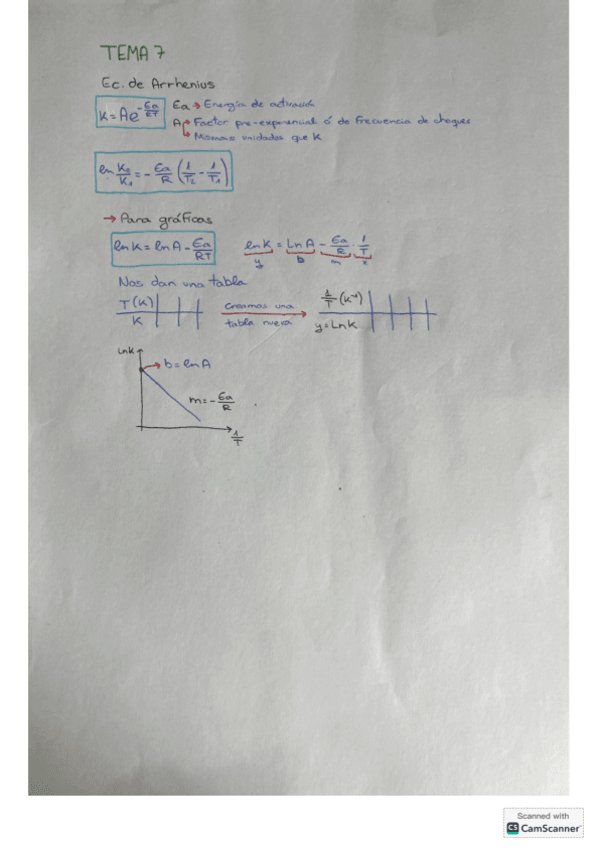 TEMA 7
Ec. de Arrhenius
K = Ae^-Ea/RT Ea → Energía de activación
A → Factor pre-exponencial ó de frecuencia de choques
↳ Mismas unidades que K
ln K₂/K₁ = - Ea/R (1/T₂ - 1/T₁)
→ Para gráficas
ln K = ln A - Ea/RT ln K = Ln A - Ea/R · 1/T
y b m x
Nos dan una tabla
T (K) Creamos una 1/T (K⁻¹)
K tabla nueva y = Ln K
Ln K
b = ln A
m = - Ea/R
1/T
Scanned with
CS CamScanner